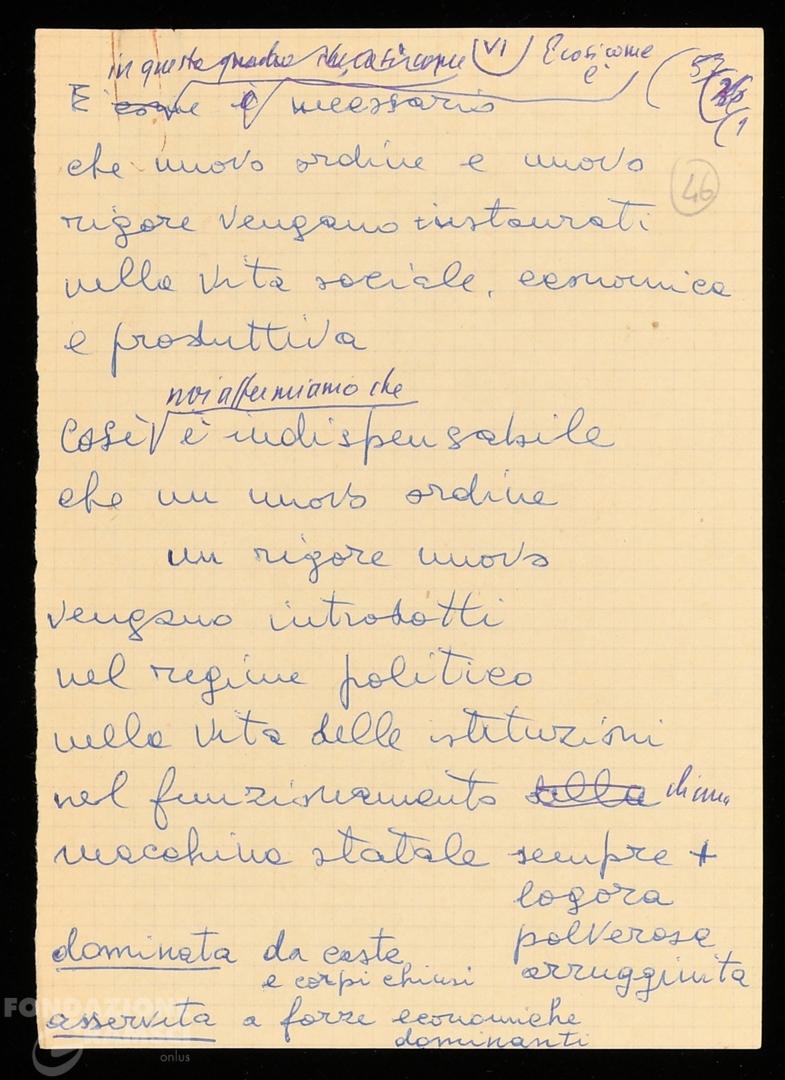 in questo quadro che, così come (VI) E così come è
E come è necessario
(1
che nuovo ordine e nuovo
46
rigore vengano instaurati
nella vita sociale, economica
e produttiva
noi affermiamo che
Così è indispensabile
che un nuovo ordine
un rigore nuovo
vengano introdotti
nel regime politico
nella vita delle istituzioni
nel funzionamento della di una
macchina statale sempre +
logora
polverosa
dominata da caste arrugginita
e corpi chiusi
asservita a forze economiche
dominanti
FONDAZIONE
onlus